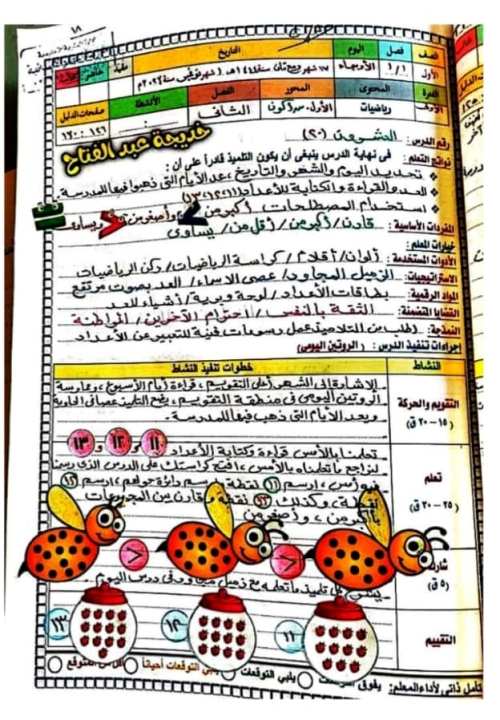 الصف
فصل
اليوم
التاريخ
الأول
١/١
الأربعاء
المحتوى
المحور
الفصل
الأنشطة
صفحات الدليل
رياضيات
الأول
الثاني
خديجة عبد الفتاح
رقم الدرس : العشرون (٢٠)
نواتج التعلم : في نهاية الدرس ينبغي أن يكون التلميذ قادراً على أن :
تحديد اليوم والشهر والتاريخ ، عد الأيام التي ذهبوا فيها للمدرسة .
العد والقراءة والكتابة للأعداد (١١، ١٢، ١٣)
استخدام المصطلحات أكبر من > وأصغر من < ويساوي =
المفردات الأساسية : قارن / أكبر من / أقل من / يساوي
خيارات المعلم :
الأدوات المستخدمة : ألوان / أقلام / كراسة الرياضيات / ركن الرياضيات
الاستراتيجيات : الزميل المجاور / عصى الأسماء / العد بصوت مرتفع
المواد الرقمية : بطاقات الأعداد / لوحة وبرية / أشياء للعد
القضايا المتضمنة : الثقة بالنفس / احترام الآخرين / المواطنة
النمذجة : اطلب من التلاميذ عمل رسومات فنية للتعبير عن الأعداد
إجراءات تنفيذ الدرس : ( الروتين اليومي)
النشاط
خطوات تنفيذ النشاط
التقويم والحركة
(١٥ – ٢٠ ق)
الإشارة إلى الشهر أعلى التقويم ، قراءة أيام الأسبوع ، وممارسة
الروتين اليومي في منطقة التقويم ، يضع التلاميذ عصا في الحاوية
وبعد الأيام التي ذهب فيها للمدرسة .
تعلم
(٢٥ – ٣٠ ق)
تعلمنا بالأمس قراءة وكتابة الأعداد ١١ و ١٢ و ١٣
لنراجع ما تعلمناه بالأمس ، افتح كراستك على الدرس الذي رسمنا
فيه أمس ، ارسم ١١ نقطة وارسم دائرة حولهم ، ارسم ١٢
نقطة ، وكذلك ١٣ نقطة وقارن بين المجموعات
بأكبر من ، وأصغر من
شارك
(٥ ق)
كل تلميذ ما تعلمه مع زميل في درس اليوم .
التقييم
١٣
١٢
١١
يفوق
يلبي التوقعات
يلبي التوقعات أحياناً
تأمل ذاتي لأداء المعلم: